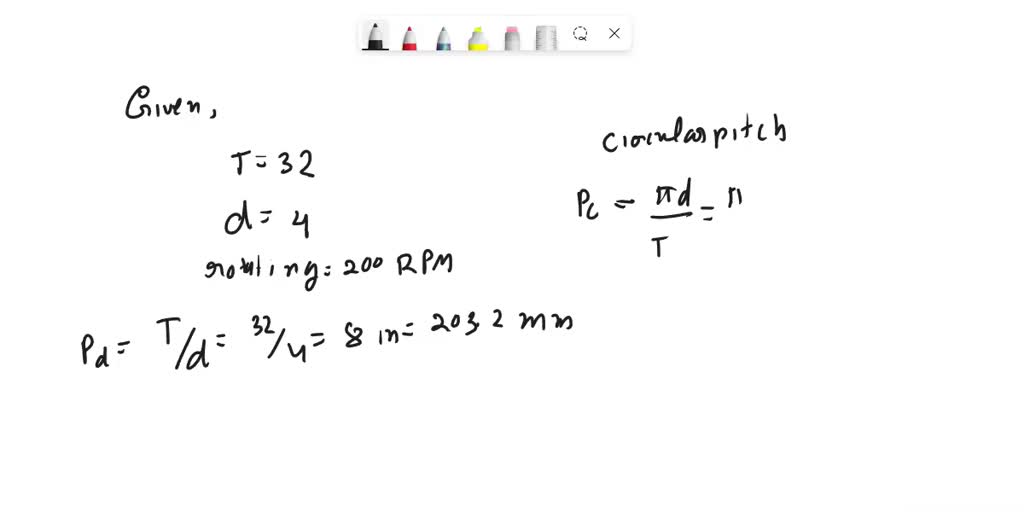 Given,
T = 32
d = 4
rotating = 200 RPM
Pd = T/d = 32/4 = 8 in = 203.2 mm
Circular pitch
Pc = πd/T = π